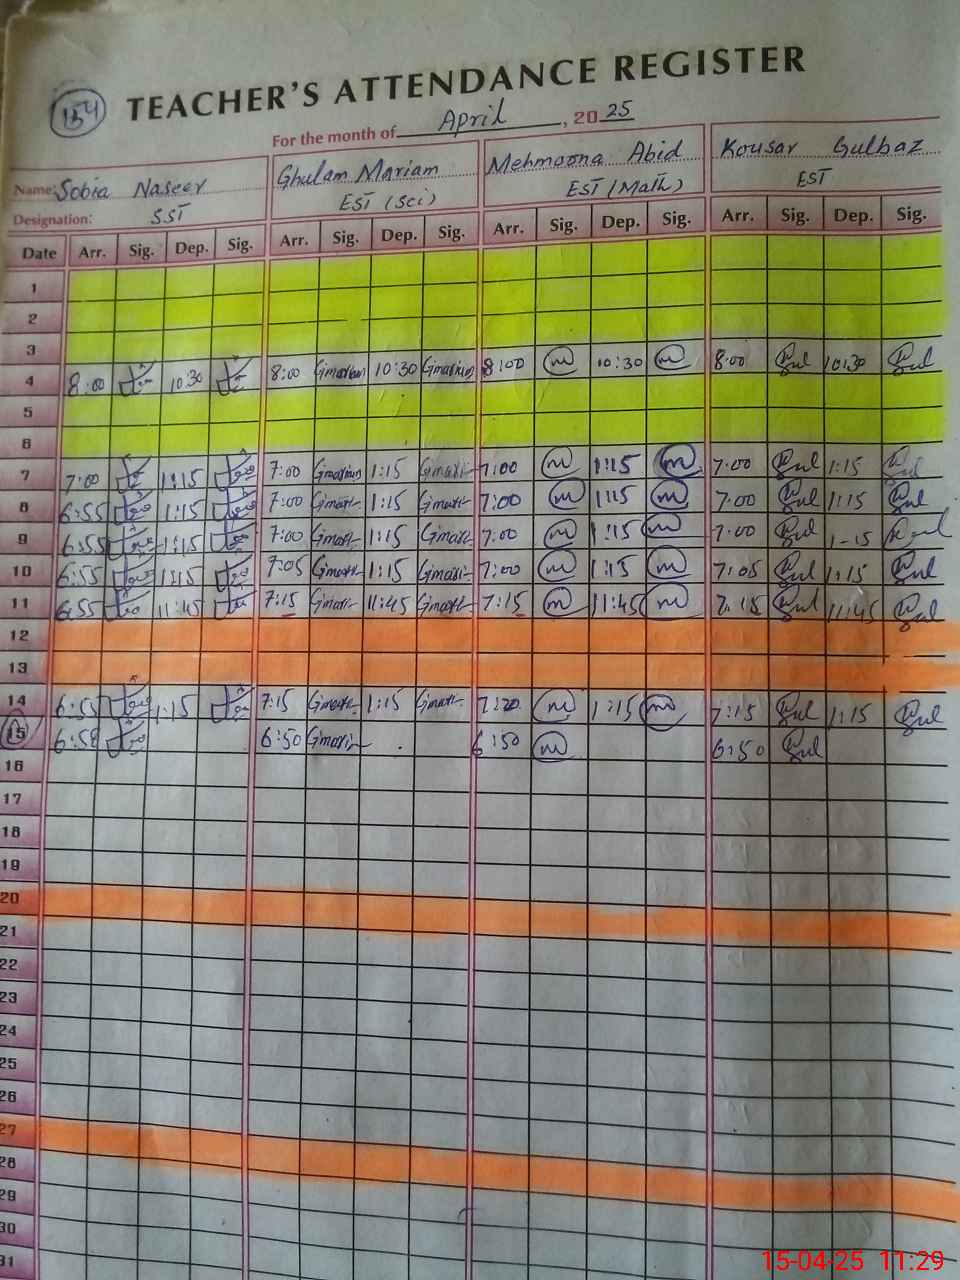 154
TEACHER'S ATTENDANCE REGISTER
For the month of April, 2025
Name: Sobia Naseer Ghulam Mariam Mehmoona Abid Kousar Gulbaz
Designation: SST EST (Sci) EST (Math) EST
Date Arr. Sig. Dep. Sig. Arr. Sig. Dep. Sig. Arr. Sig. Dep. Sig. Arr. Sig. Dep. Sig.
1
2
3
4 8:00 10:30 8:00 Gmariam 10:30 Gmariam 8:00 m 10:30 m 8:00 Gul 10:30 Gul
5
6
7 7:00 1:15 7:00 Gmariam 1:15 7:00 m 1:15 m 7:00 Gul 1:15 Gul
8 6:55 1:15 7:00 1:15 7:00 m 1:15 m 7:00 Gul 1:15 Gul
9 6:55 1:15 7:00 1:15 7:00 m 1:15 m 7:00 Gul 1-15 Gul
10 6:55 1:15 7:05 1:15 7:00 m 1:15 m 7:05 Gul 1:15 Gul
11 6:55 11:45 7:15 11:45 7:15 m 11:45 m 7:15 Gul 11:45 Gul
12
13
14 6:55 1:15 7:15 1:15 7:20 m 1:15 m 7:15 Gul 1:15 Gul
15 6:58 6:50 6:50 m 6:50 Gul
16
17
18
19
20
21
22
23
24
25
26
27
28
29
30
31
15-04-25 11:29